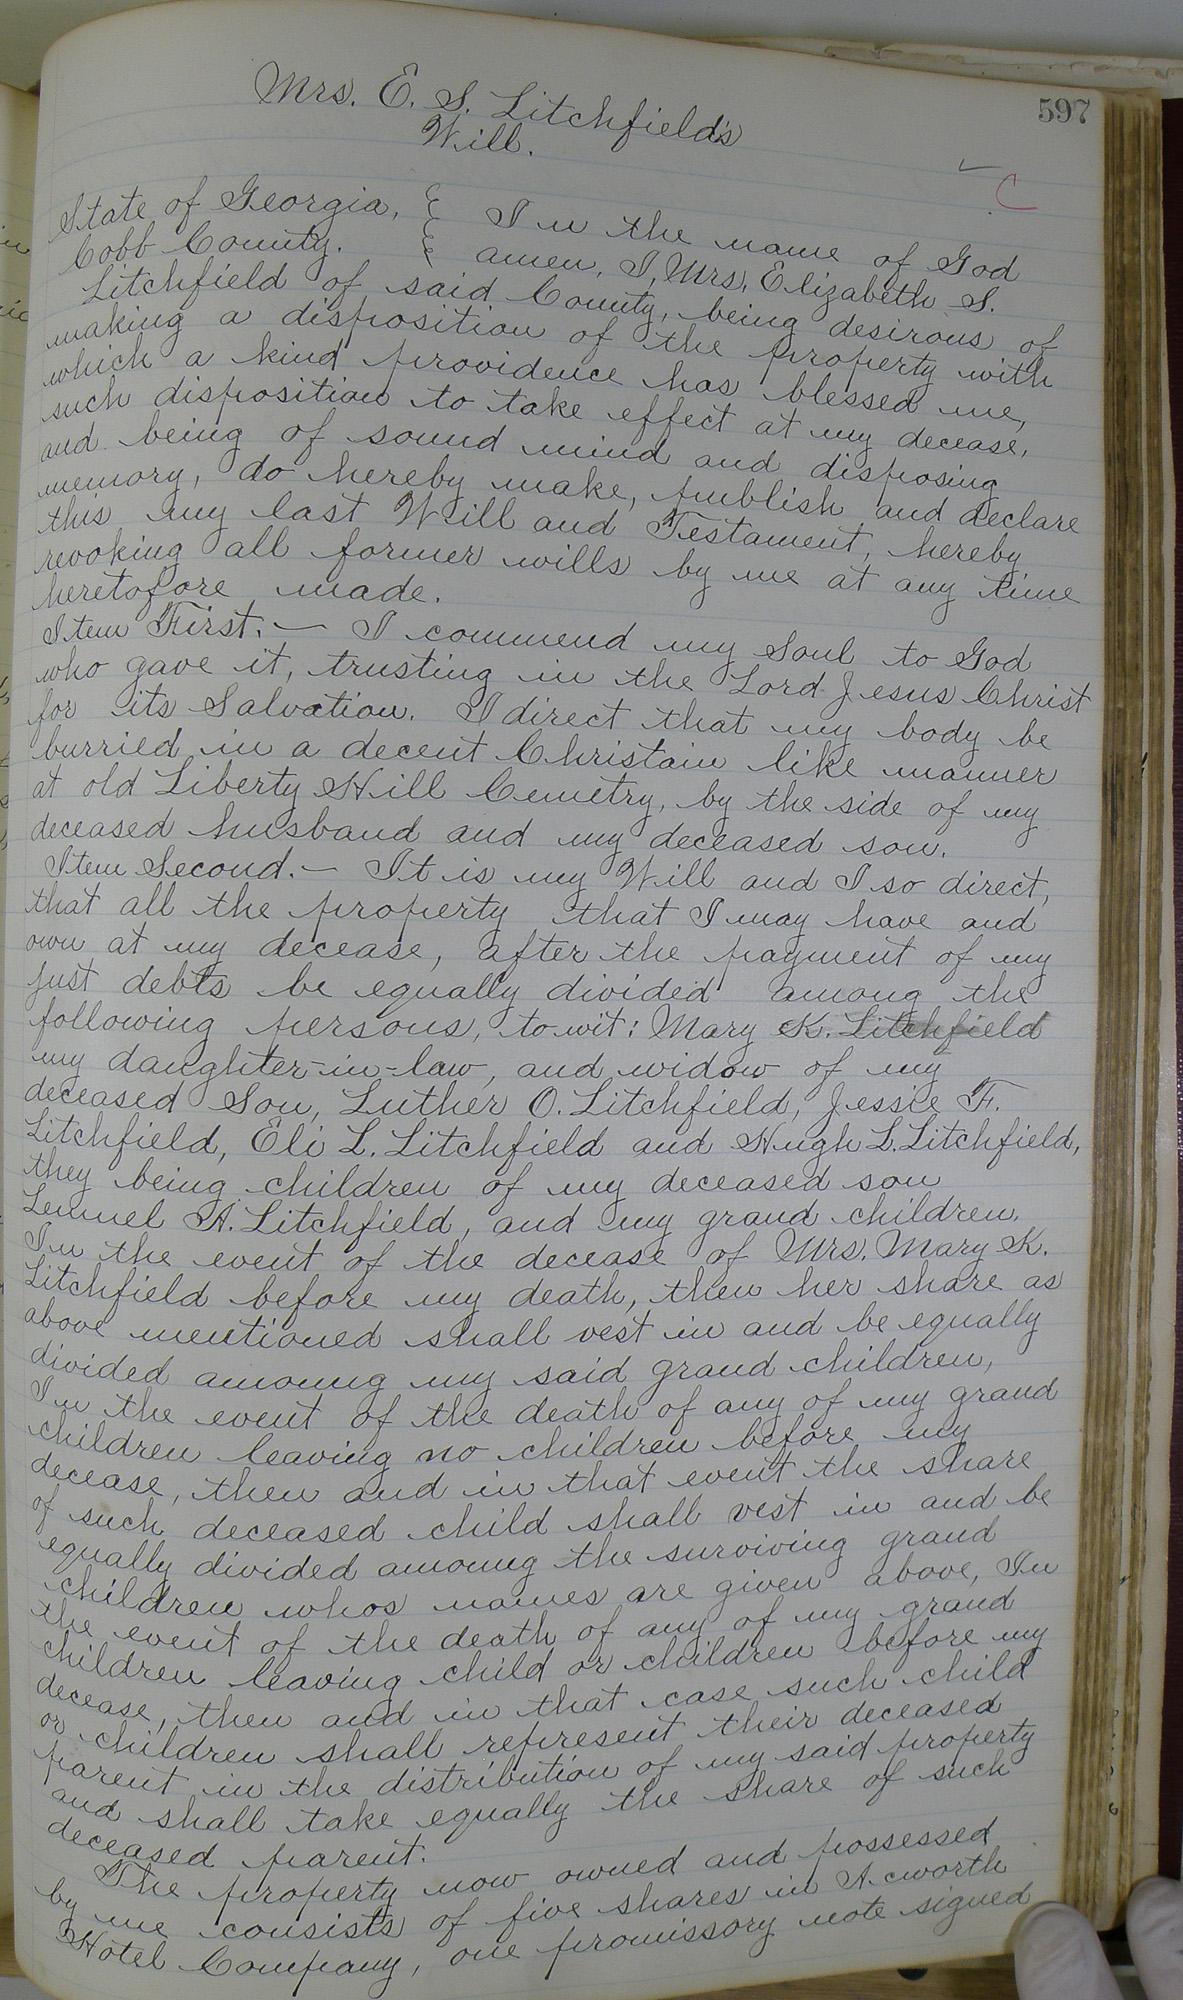 597
Mrs. E. S. Litchfield's
Will.
C
State of Georgia, } In the name of God
Cobb County. } amen, I, Mrs, Elizabeth S.
Litchfield of said County, being desirous of
making a disposition of the property with
which a kind providence has blessed me,
such disposition to take effect at my decease,
and being of sound mind and disposing
memory, do hereby make, publish and declare
this my last Will and Testament, hereby
revoking all former wills by me at any time
heretofore made.
Item First. — I commend my Soul to God
who gave it, trusting in the Lord Jesus Christ
for its Salvation. I direct that my body be
burried in a decent Christain like manner
at old Liberty Hill Cemetry, by the side of my
deceased husband and my deceased son.
Item Second. — It is my Will and I so direct,
that all the property that I may have and
own at my decease, after the payment of my
just debts be equally divided among the
following persons, to-wit: Mary K. Litchfield
my daughter-in-law, and widow of my
deceased Son, Luther O. Litchfield, Jessie F.
Litchfield, Eli L. Litchfield and Hugh L. Litchfield,
they being children of my deceased son
Lemuel A. Litchfield, and my grand children.
In the event of the decease of Mrs. Mary K.
Litchfield before my death, then her share as
above mentioned shall vest in and be equally
divided amoung my said grand children,
In the event of the death of any of my grand
children leaving no children before my
decease, then and in that event the share
of such deceased child shall vest in and be
equally divided amoung the surviving grand
children whos names are given above, In
the event of the death of any of my grand
children leaving child or children before my
decease, then and in that case such child
or children shall represent their deceased
parent in the distribution of my said property
and shall take equally the share of such
deceased parent.
The property now owned and possessed
by me consists of five shares in Acworth
Hotel Company, one promissory note signed